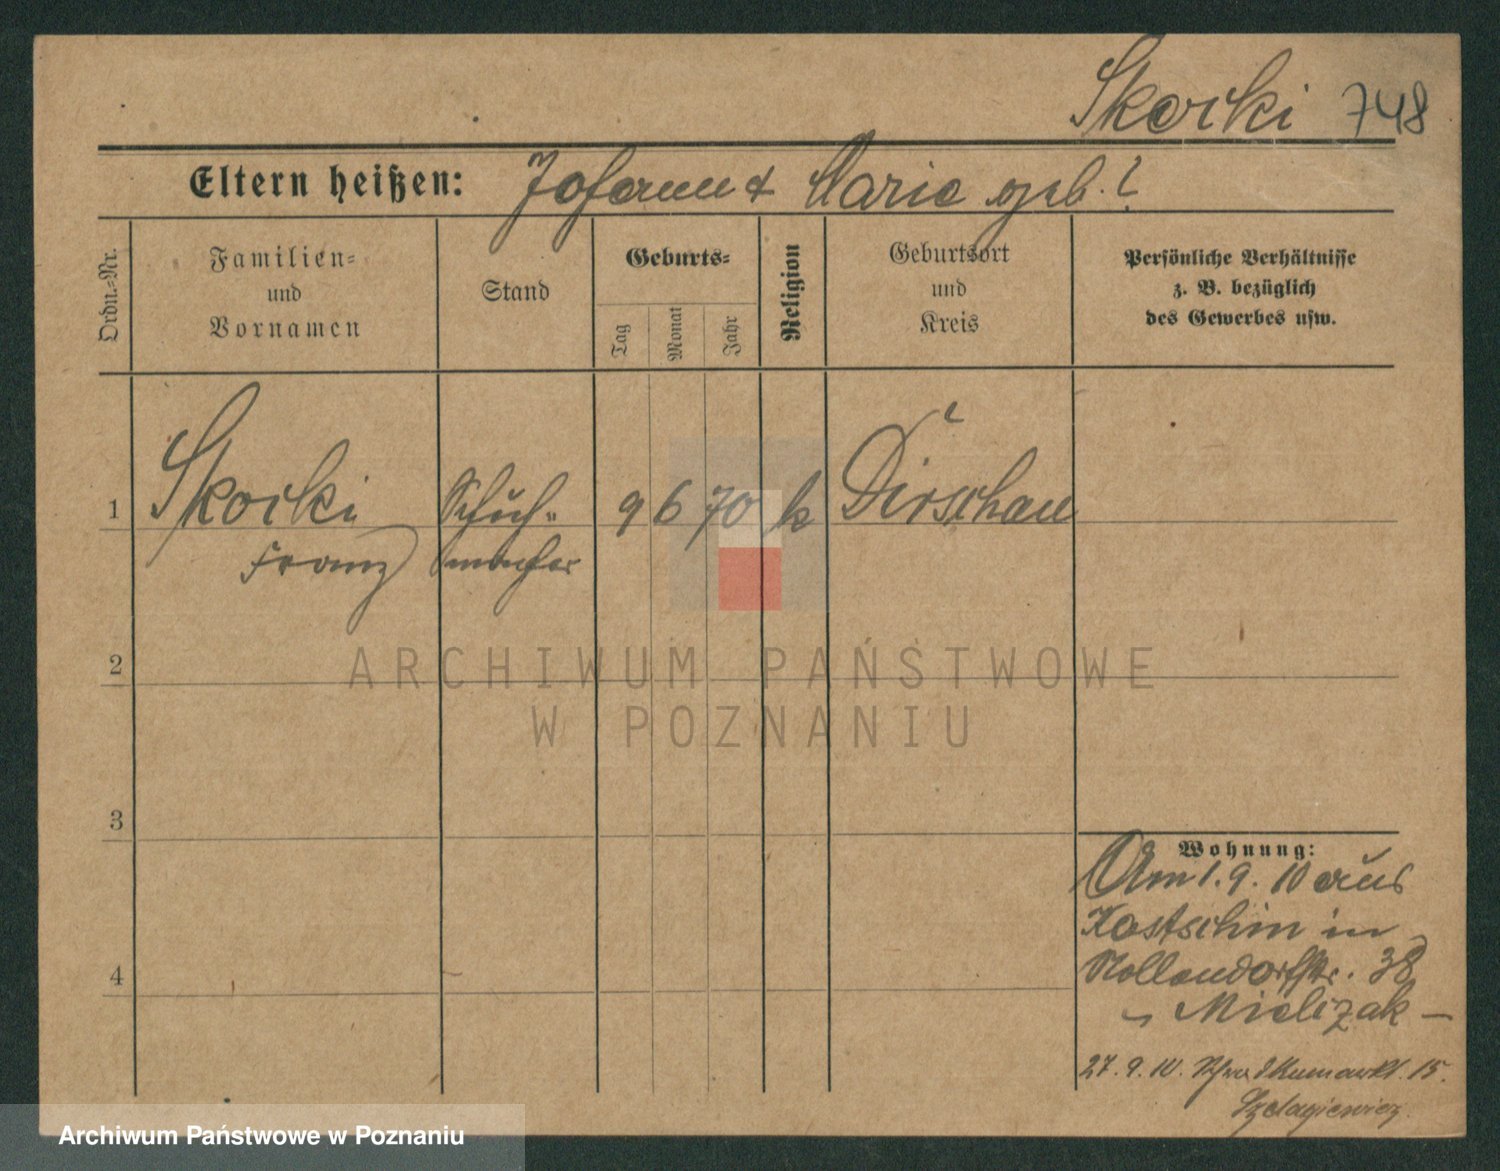 Skorki 748
Eltern heißen: Johann & Marie geb. ?
Ordn.-Nr.
Familien-
und
Vornamen
Stand
Geburts-
Tag
Monat
Jahr
Religion
Geburtsort
und
Kreis
Persönliche Verhältnisse
z. B. bezüglich
des Gewerbes usw.
1 Skorki Schuh- 9 6 70 k Dirschau ?
Franz macher
2
ARCHIWUM PAŃSTWOWE
W POZNANIU
3
Wohnung:
Am 1. 9. 10 aus
Kostschin in
Nollendorfstr. 38
Mielizak
4
27. 9. 10. 15.
Szelagiewicz
Archiwum Państwowe w Poznaniu